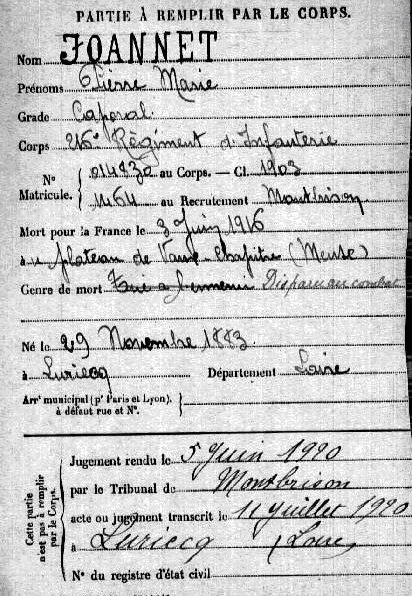 PARTIE À REMPLIR PAR LE CORPS.
Nom JOANNET
Prénoms Pierre Marie
Grade Caporal
Corps 216e Régiment d'Infanterie
N° Matricule. { 014830 au Corps. — Cl. 1903
1164 au Recrutement Montbrison
Mort pour la France le 3 Juin 1916
à u plateau de Vaux-Chapitre (Meuse)
Genre de mort Tué à l'ennemi Disparu au combat
Né le 29 Novembre 1883
à Luriecq Département Loire
Arrt municipal (pr Paris et Lyon), à défaut rue et N°. {
Cette partie n'est pas à remplir par le Corps.
Jugement rendu le 5 Juin 1920
par le Tribunal de Montbrison
acte ou jugement transcrit le 11 juillet 1920
à Luriecq (Loire)
N° du registre d'état civil